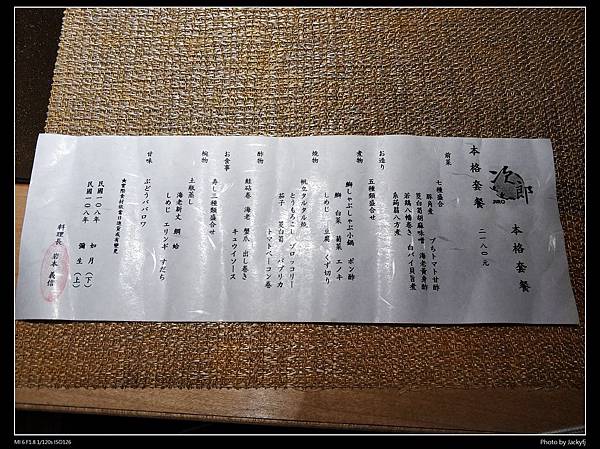 次郎
JIRO
本格套餐
本格套餐
二一八〇元
前菜
七種盛合
豚角煮 プちトマト甘酢
筊白筍胡麻味噌 海老黄身酢
若鶏八幡巻き 白バイ貝旨煮
糸蒟蒻八方煮
お造り
五種類盛合せ
煮物
鰤しゃぶしゃぶ小鍋 ポン酢
鰤 白菜 菊菜 エノキ
しめじ 豆腐 くず切り
焼物
帆立タルタル焼
とうもろこし ブロッコリー
茄子 筊白筍 パプリカ
トマトベーコン巻
酢物
鮭砧巻 海老 蟹爪 出し巻き
キュウイソース
お食事
寿し三種類盛合せ
椀物
土瓶蒸し
海老新丈 鯛 蛤
しめじ エリンギ すだち
甘味
ぶどうババロワ
民國一〇八年 如月(下)
民國一〇八年 彌生(上)
料理長 岩本義信
MI 6 F1.8 1/120s ISO126
Photo by Jackyfj